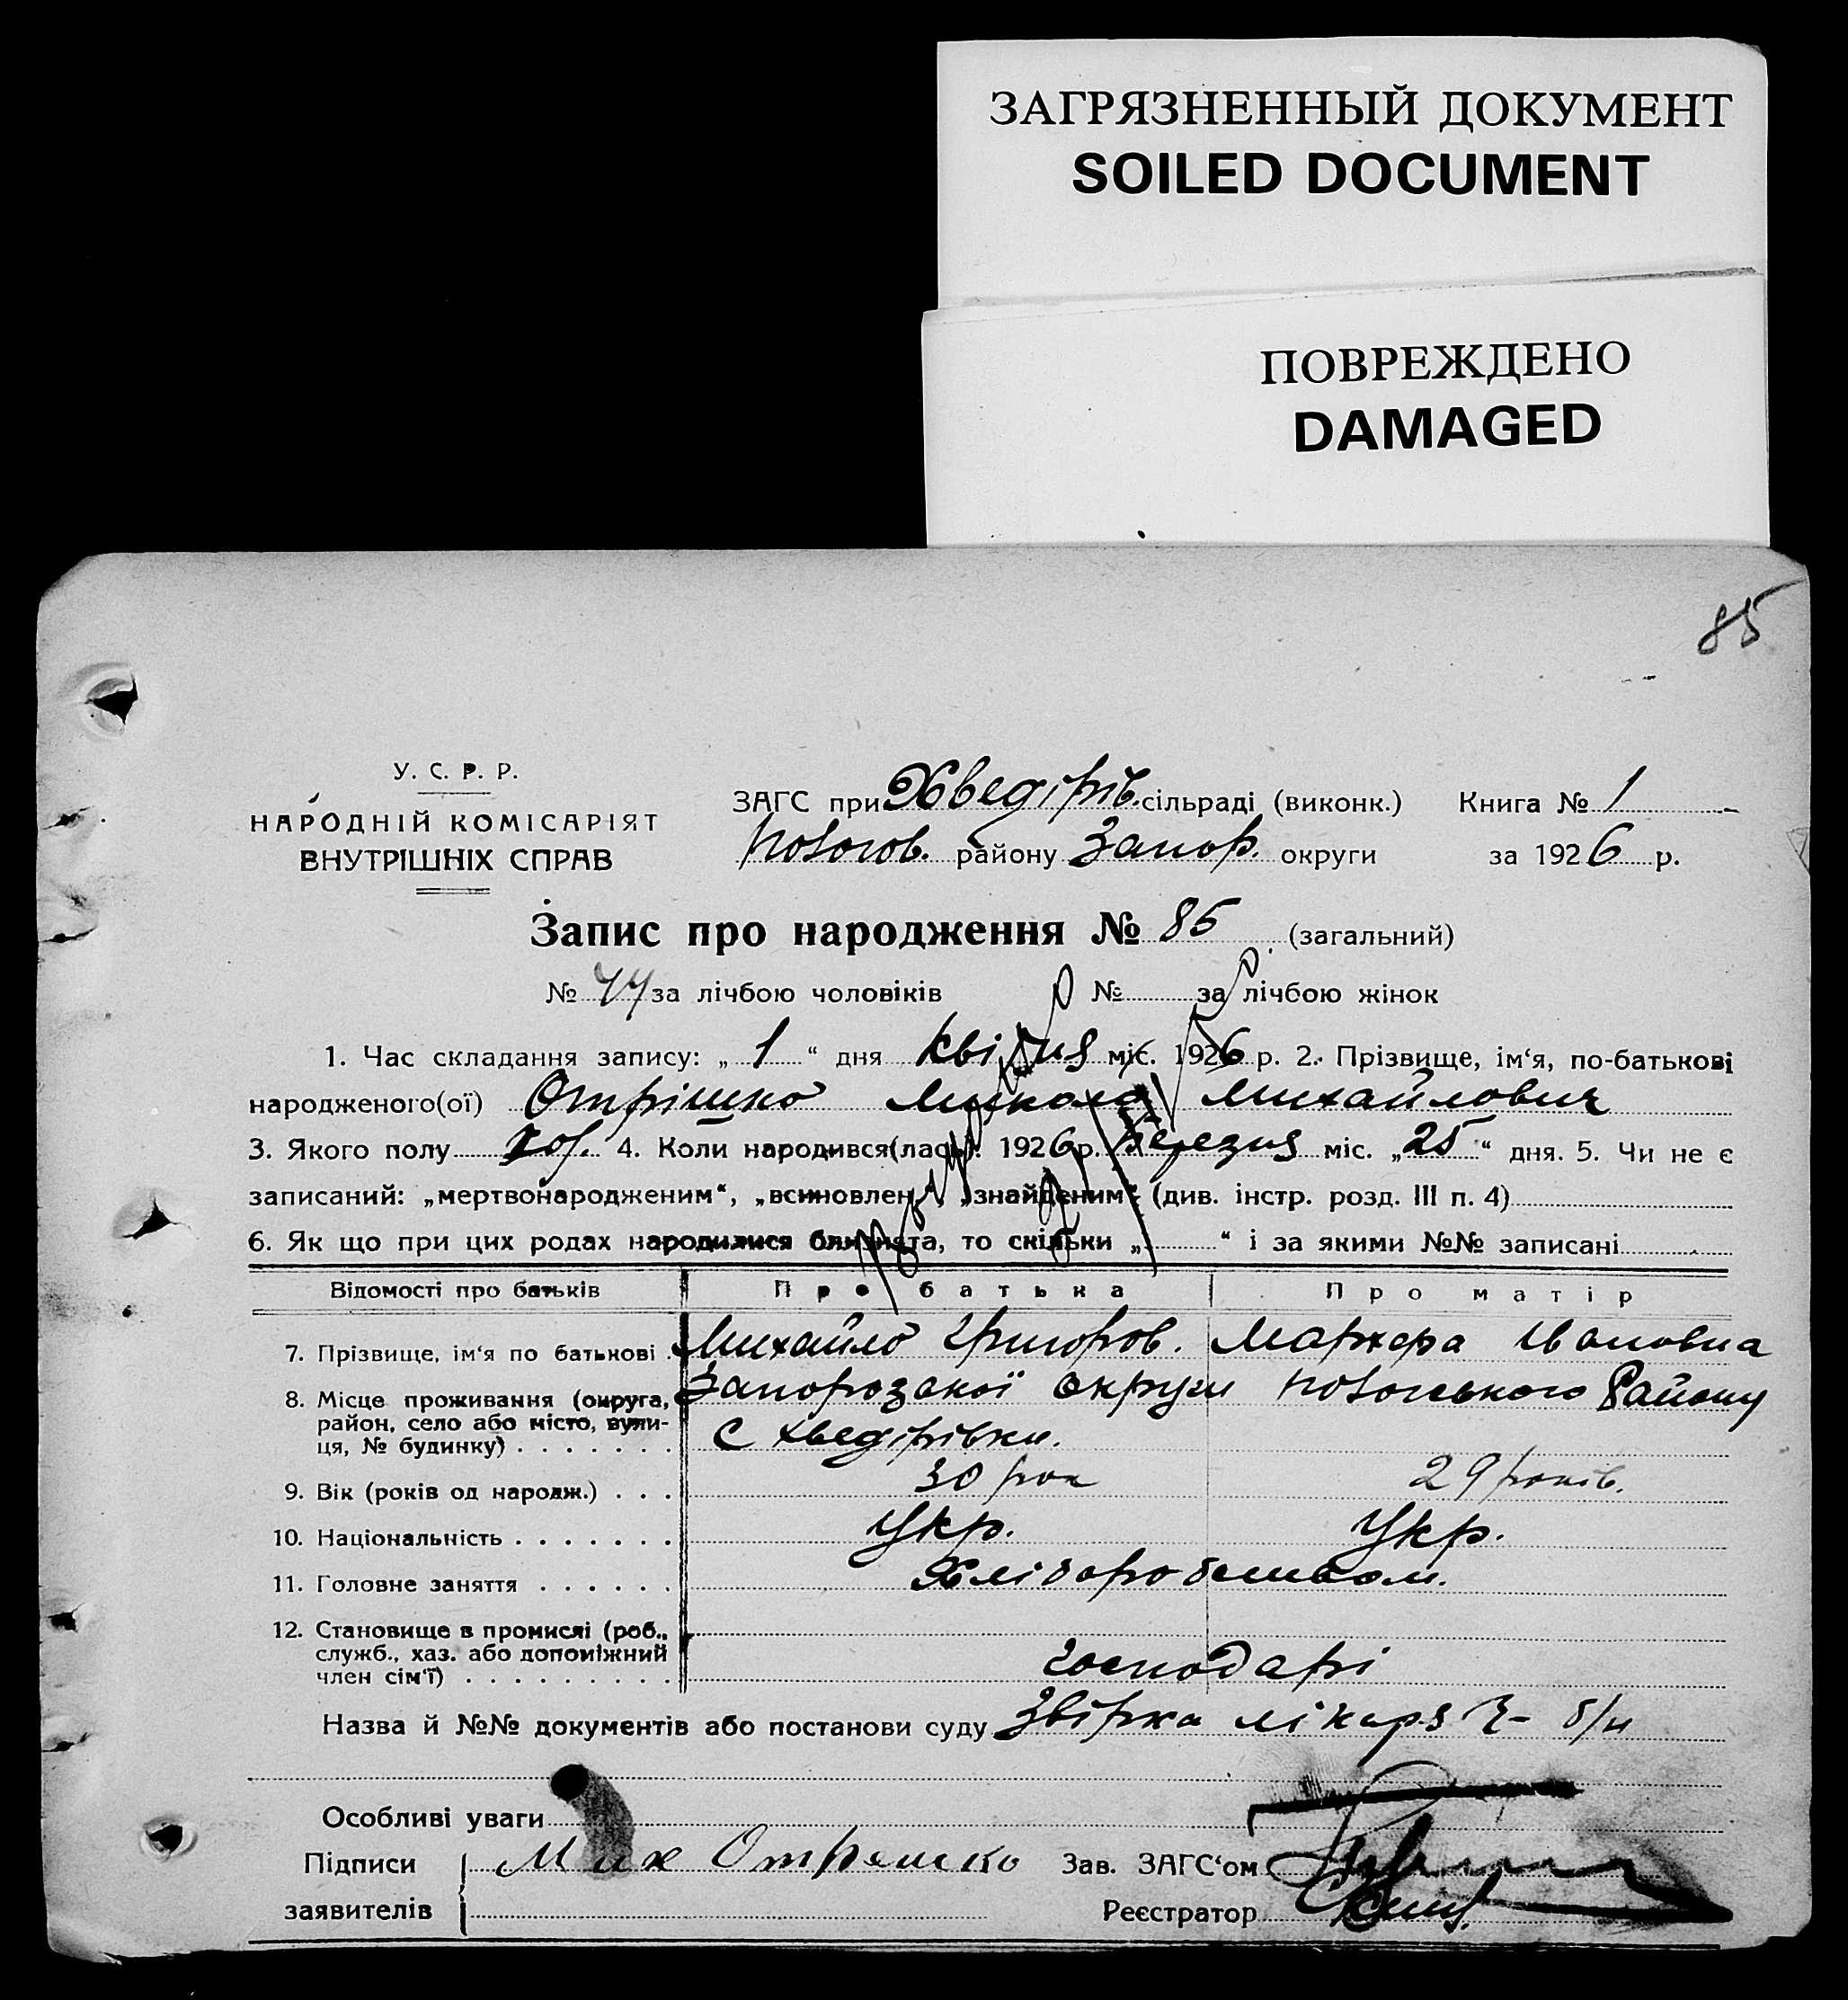 ЗАГРЯЗНЕННЫЙ ДОКУМЕНТ
SOILED DOCUMENT
ПОВРЕЖДЕНО
DAMAGED
85
У. С. Р. Р.
НАРОДНІЙ КОМІСАРІЯТ
ВНУТРІШНІХ СПРАВ
ЗАГС при Хведірів. сільраді (виконк.) Книга № 1
Пологов. району Запор. округи за 1926 р.
Запис про народження № 85 (загальний)
№ 44 за лічбою чоловіків № за лічбою жінок
1. Час складання запису: „ 1 “ дня квітня міс. 1926 р. 2. Прізвище, ім‘я, по-батькові
народженого(ої) Отрішко Микола Михайлович
3. Якого полу 4. Коли народився(лась). 1926 р. Березня міс. „ 25 “ дня. 5. Чи не є
записаний: „мертвонародженим“, „всиновлен „знайденим“ (див. інстр. розд. III п. 4)
6. Як що при цих родах народилися близнята, то скільки „ “ і за якими №№ записані
Відомості про батьків Про батька Про матір
7. Прізвище, ім‘я по батькові Михайло Григоров. Марфера Івановна
8. Місце проживання (округа, Запорозської округи Пологського Району
район, село або місто, вули-
ця, № будинку) с Хведірівки.
9. Вік (років од народж.) 30 рок 29 років.
10. Національність Укр. Укр.
11. Головне заняття Хліборобством.
12. Становище в промислі (роб.,
служб., хаз. або допоміжний
член сім‘ї) господарі
Назва й №№ документів або постанови суду Звірка лікаря б/н
Особливі уваги
Підписи Мих Отрешко Зав. ЗАГС‘ом
заявителів Реєстратор